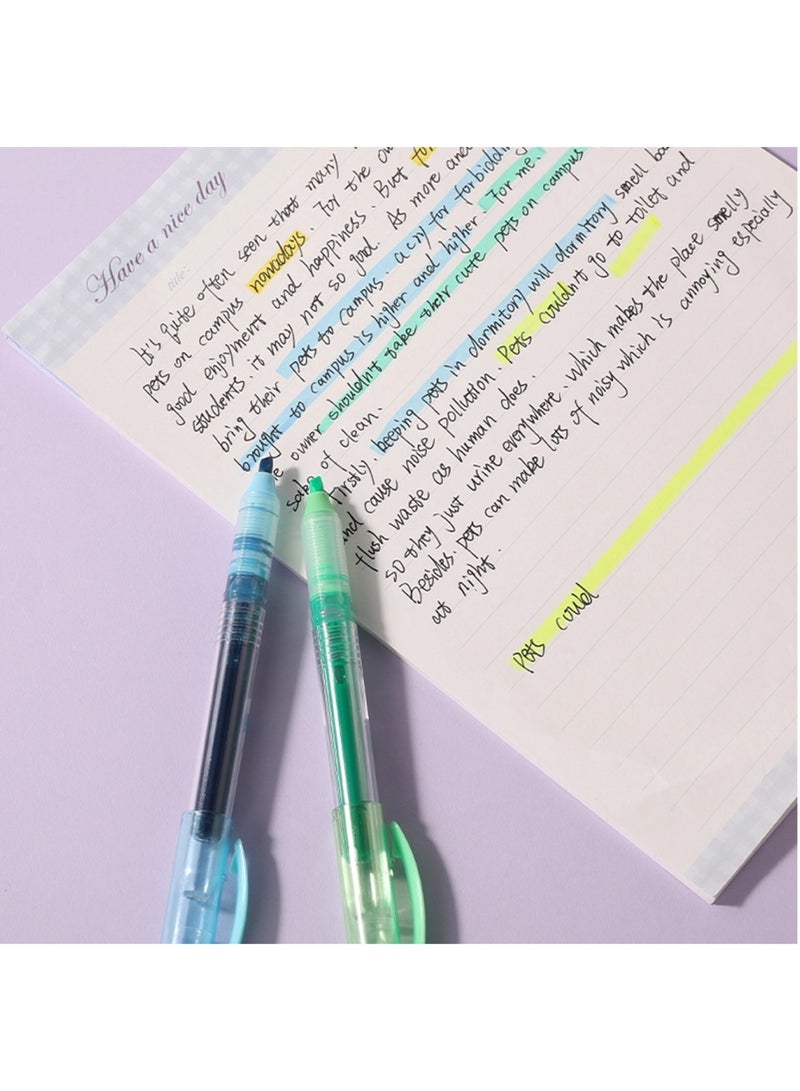 Have a nice day
title:
It's quite often seen that many
pets on campus nowadays. For the
good enjoyment and happiness. But
students. it may not so good. As more and
bring their pets to campus. a cry for
brought to campus is higher and higher. For me.
owner shouldn't take their cute pets on campus
sake of clean.
Firstly. keeping pets in dormitory will dormitory smell
and cause noise pollution. Pets couldn't go to toilet and
flush waste as human does.
so they just urine everywhere. which makes the place smelly
Besides. pets can make lots of noisy which is annoying especially
at night.
Pets could